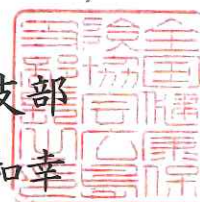 支部
和幸
全国健康保
険協会広島
支部長之印